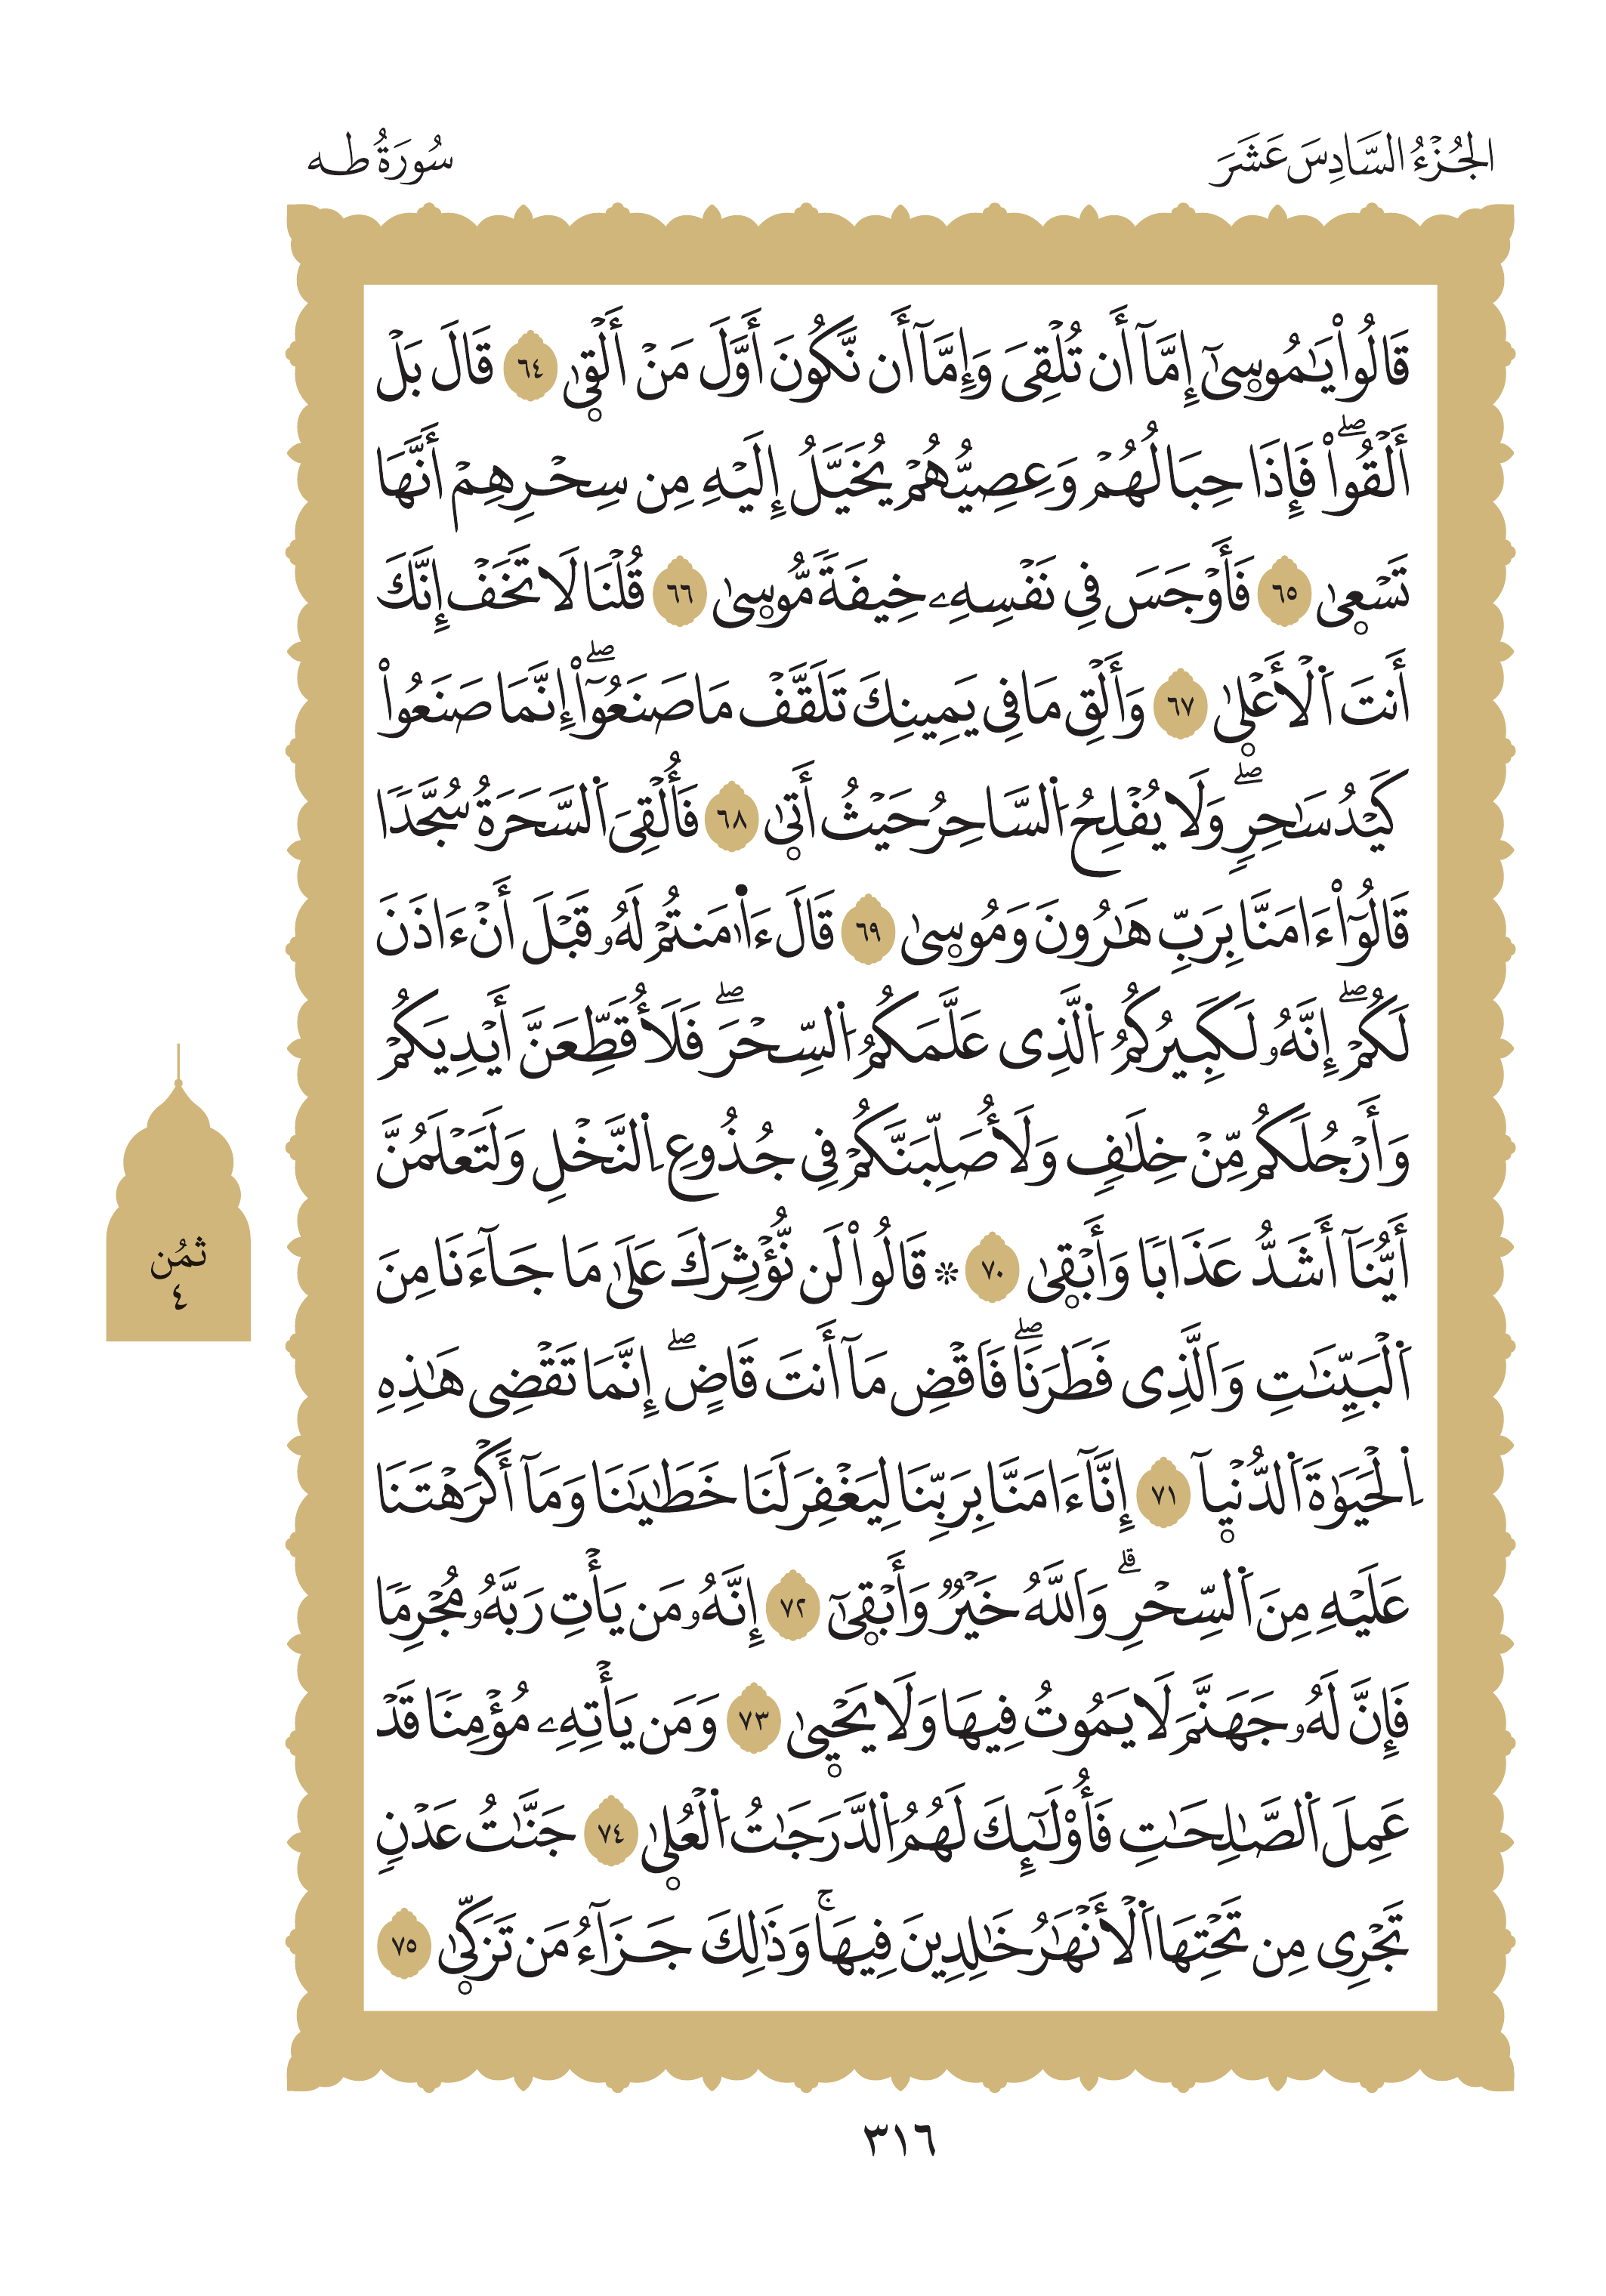 الجُزْءُ السَّادِسَ عَشَرَ
سُورَةُ طه
قَالُواْ يَٰمُوسىٰٓ إِمَّآ أَن تُلْقِىَ وَإِمَّآ أَن نَّكُونَ أَوَّلَ مَنْ أَلْقىٰ ٦٤ قَالَ بَلْ
أَلْقُواْۖ فَإِذَا حِبَالُهُمْ وَعِصِيُّهُمْ يُخَيَّلُ إِلَيْهِ مِن سِحْرِهِمْ أَنَّهَا
تَسْعىٰ ٦٥ فَأَوْجَسَ فِى نَفْسِهِۦ خِيفَةً مُّوسىٰ ٦٦ قُلْنَا لَا تَخَفْ إِنَّكَ
أَنتَ اَ۬لْأَعْلىٰ ٦٧ وَأَلْقِ مَا فِى يَمِينِكَ تَلَقَّفْ مَا صَنَعُوٓاْۖ إِنَّمَا صَنَعُواْ
كَيْدُ سَٰحِرٍۖ وَلَا يُفْلِحُ اُ۬لسَّاحِرُ حَيْثُ أَتىٰ ٦٨ فَأُلْقِىَ اَ۬لسَّحَرَةُ سُجَّدًا
قَالُوٓاْ ءَامَنَّا بِرَبِّ هَٰرُونَ وَمُوسىٰ ٦٩ قَالَ ءَا۬مَنتُمْ لَهُۥ قَبْلَ أَنْ ءَاذَنَ
لَكُمْۖ إِنَّهُۥ لَكَبِيرُكُمُ اُ۬لَّذِى عَلَّمَكُمُ اُ۬لسِّحْرَۖ فَلَأُقَطِّعَنَّ أَيْدِيَكُمْ
وَأَرْجُلَكُم مِّنْ خِلَٰفٍ وَلَأُصَلِّبَنَّكُمْ فِى جُذُوعِ اِ۬لنَّخْلِ وَلَتَعْلَمُنَّ
أَيُّنَآ أَشَدُّ عَذَابًا وَأَبْقىٰ ٧٠ ۞ قَالُواْ لَن نُّؤْثِرَكَ عَلَىٰ مَا جَآءَنَا مِنَ
اَ۬لْبَيِّنَٰتِ وَاَلَّذِى فَطَرَنَاۖ فَاقْضِ مَآ أَنتَ قَاضٍۖ إِنَّمَا تَقْضِى هَٰذِهِ
اِ۬لْحَيَوٰةَ اَ۬لدُّنْيآ ٧١ إِنَّآ ءَامَنَّا بِرَبِّنَا لِيَغْفِرَ لَنَا خَطَٰيَٰنَا وَمَآ أَكْرَهْتَنَا
عَلَيْهِ مِنَ اَ۬لسِّحْرِۗ وَاَللَّهُ خَيْرٌ وَأَبْقىٰٓ ٧٢ إِنَّهُۥ مَن يَأْتِ رَبَّهُۥ مُجْرِمًا
فَإِنَّ لَهُۥ جَهَنَّمَ لَا يَمُوتُ فِيهَا وَلَا يَحْيىٰ ٧٣ وَمَن يَأْتِهِۦ مُؤْمِنًا قَدْ
عَمِلَ اَ۬لصَّٰلِحَٰتِ فَأُوْلَٰٓئِكَ لَهُمُ اُ۬لدَّرَجَٰتُ اُ۬لْعُلىٰ ٧٤ جَنَّٰتُ عَدْنٍ
تَجْرِى مِن تَحْتِهَا اَ۬لْأَنْهَٰرُ خَٰلِدِينَ فِيهَاۚ وَذَٰلِكَ جَزَآءُ مَن تَزَكّىٰ ٧٥
ثُمُن
٤
٣١٦